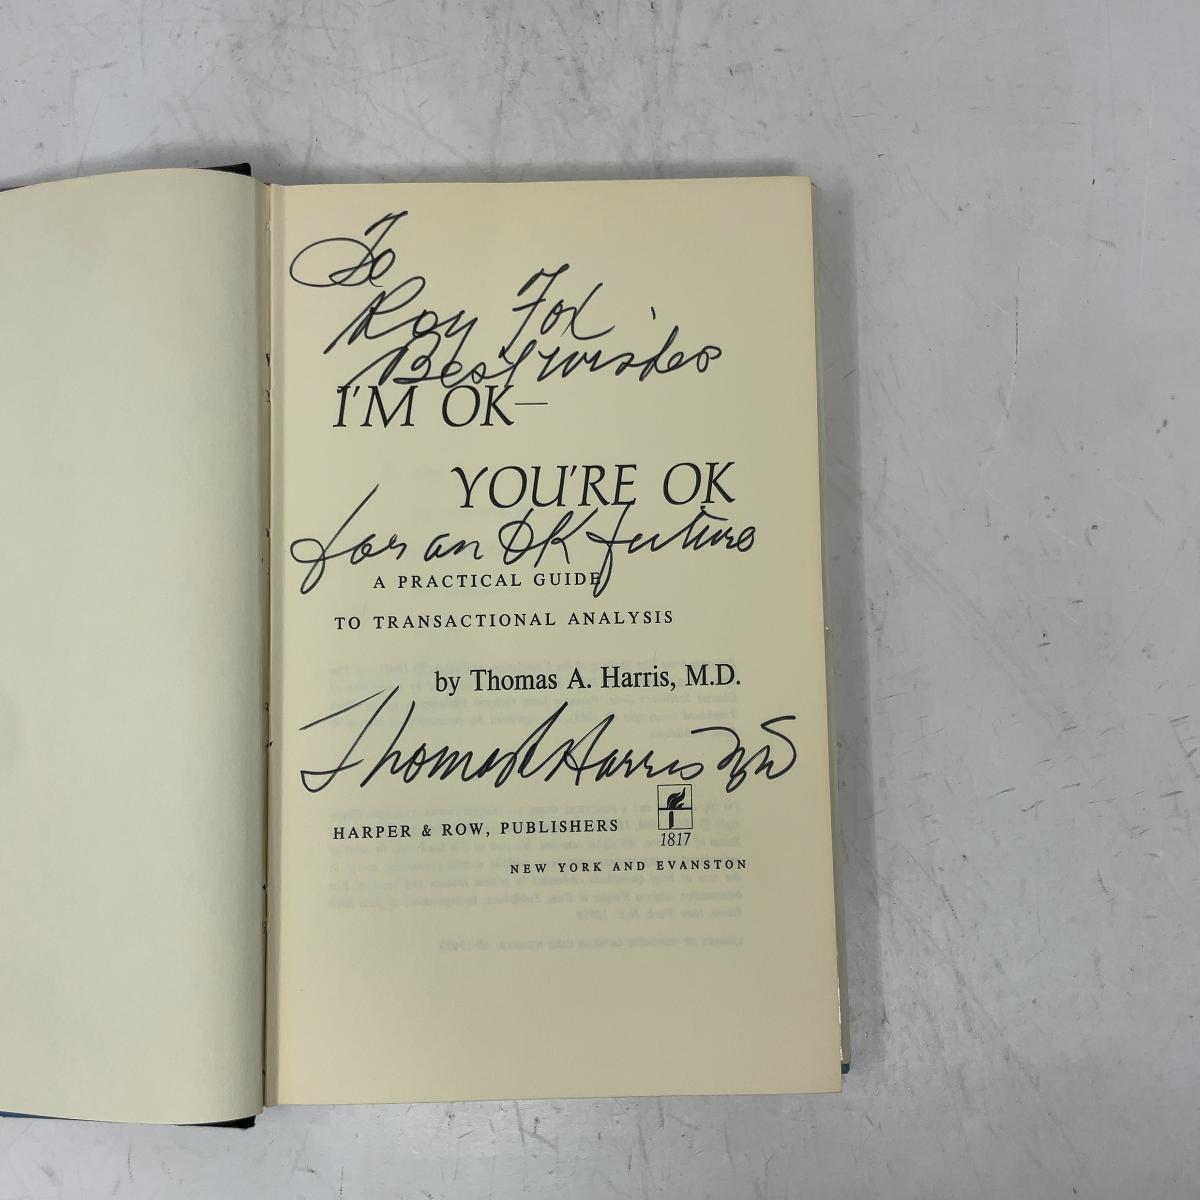 To
Roy Fox
Best wishes
I'M OK—
YOU'RE OK
for an OK future
A PRACTICAL GUIDE
TO TRANSACTIONAL ANALYSIS
by Thomas A. Harris, M.D.
Thomas A Harris MD
HARPER & ROW, PUBLISHERS
1817
NEW YORK AND EVANSTON